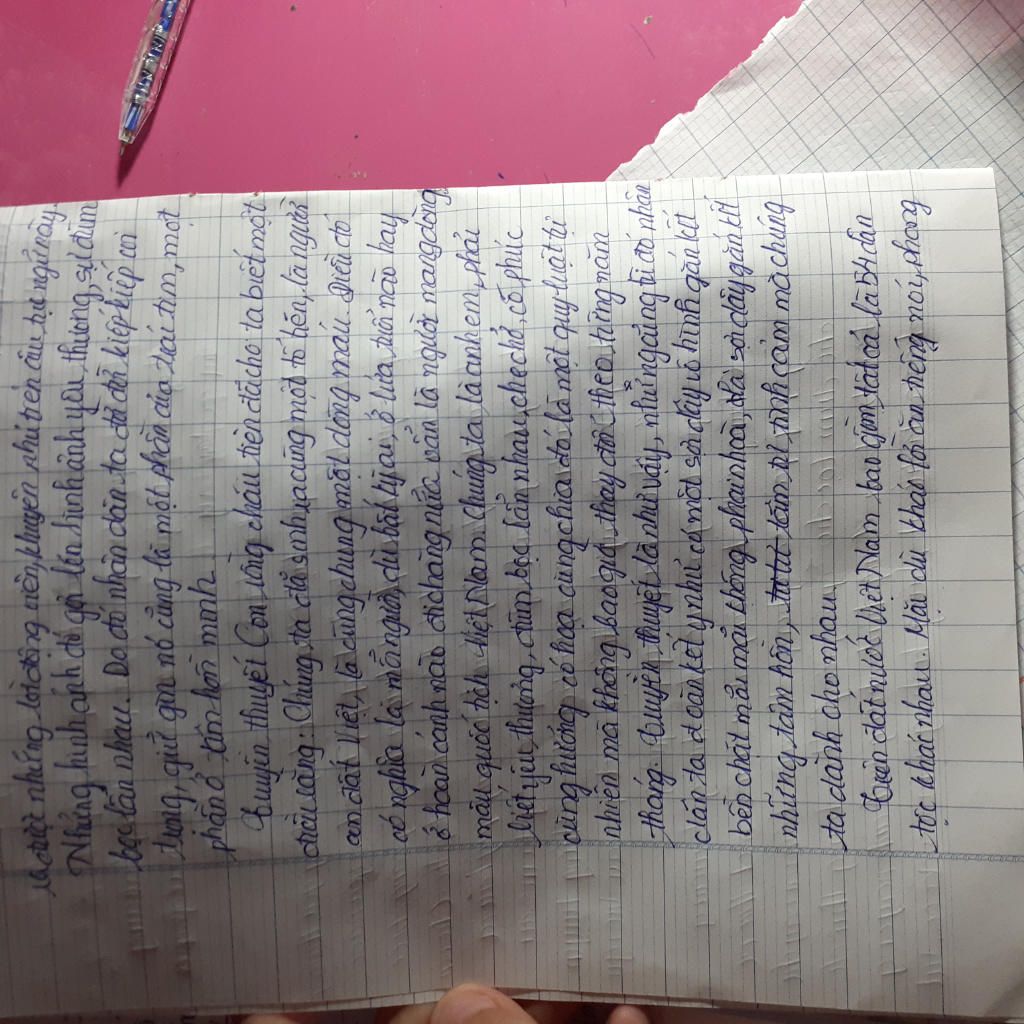 ra được những lời động viên, khuyên nhủ trên câu tục ngữ này.
Những hình ảnh đó gợi lên hình ảnh yêu thương, sự đùm
bọc lẫn nhau. Do đó nhân dân ta đã đã kiếp kiếp coi
trọng, giữ gìn nó cũng là một phần của trái tim, một
phần ở tâm hồn mình.
Truyền thuyết Con rồng cháu tiên đã cho ta biết một
điều rằng: Chúng ta đã sinh ra cùng một tổ tiên, là người
con đất Việt, là cùng chung một dòng máu. Điều đó
có nghĩa là mỗi người, dù bất kỳ ai, ở lứa tuổi nào hay
ở hoàn cảnh nào đi chăng nữa vẫn là người mang dòng
máu, quốc tịch Việt Nam. Chúng ta, là anh em, phải
biết yêu thương, đùm bọc lẫn nhau, che chở, có phúc
cùng hưởng có họa cùng chia đó là một quy luật tự
nhiên mà không bao giờ thay đổi theo từng năm
tháng. Truyền thuyết là như vậy, nhưng ẩn ngầm tại đó nhân
dân ta đoàn kết y như có một sợi dây vô hình gắn kết
bền chặt mãi mãi không phai nhoà, là sợi dây gắn kết
những tâm hồn, tấm tình cảm mà chúng
ta dành cho nhau.
Trên đất nước Việt Nam bao gồm tất cả là 54 dân
tộc khác nhau. Mặc dù khác tiếng nói, phong